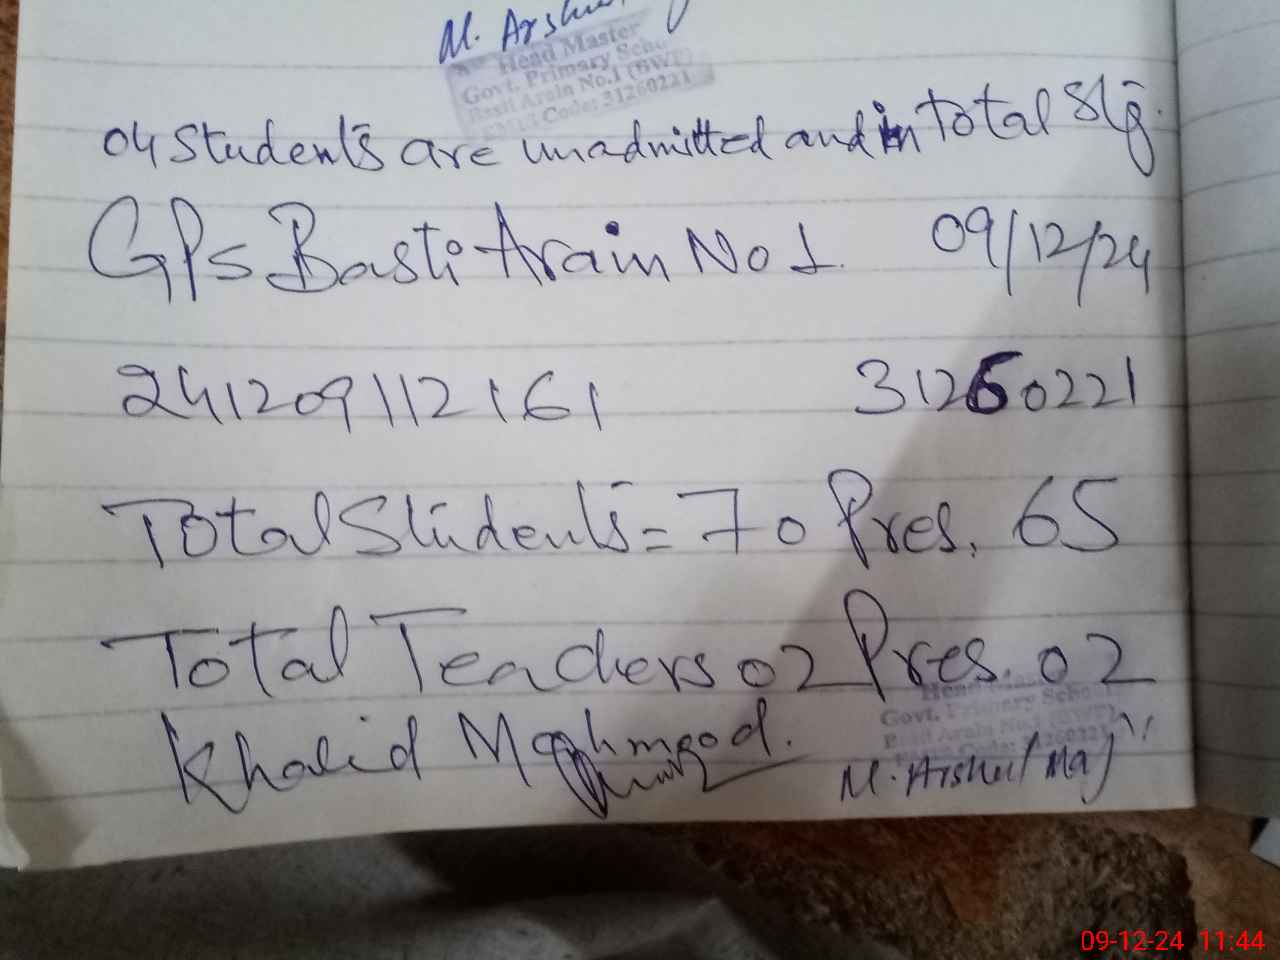 M. Arshu
Head Master
Govt. Primary Scho
Basti Arain No.1 (BWP)
EMIS Code: 31260221
04 Students are unadmitted and in total Stg.
GPS Basti Arain No 1. 09/12/24
241209112161 31260221
Total Students = 70 Pres. 65
Total Teachers 02 Pres. 02
Head Master
Govt. Primary School
Basti Arain No.1 (BWP)
Code: 31260221
Khalid Maqhmood. M. Arshu
09-12-24 11:44